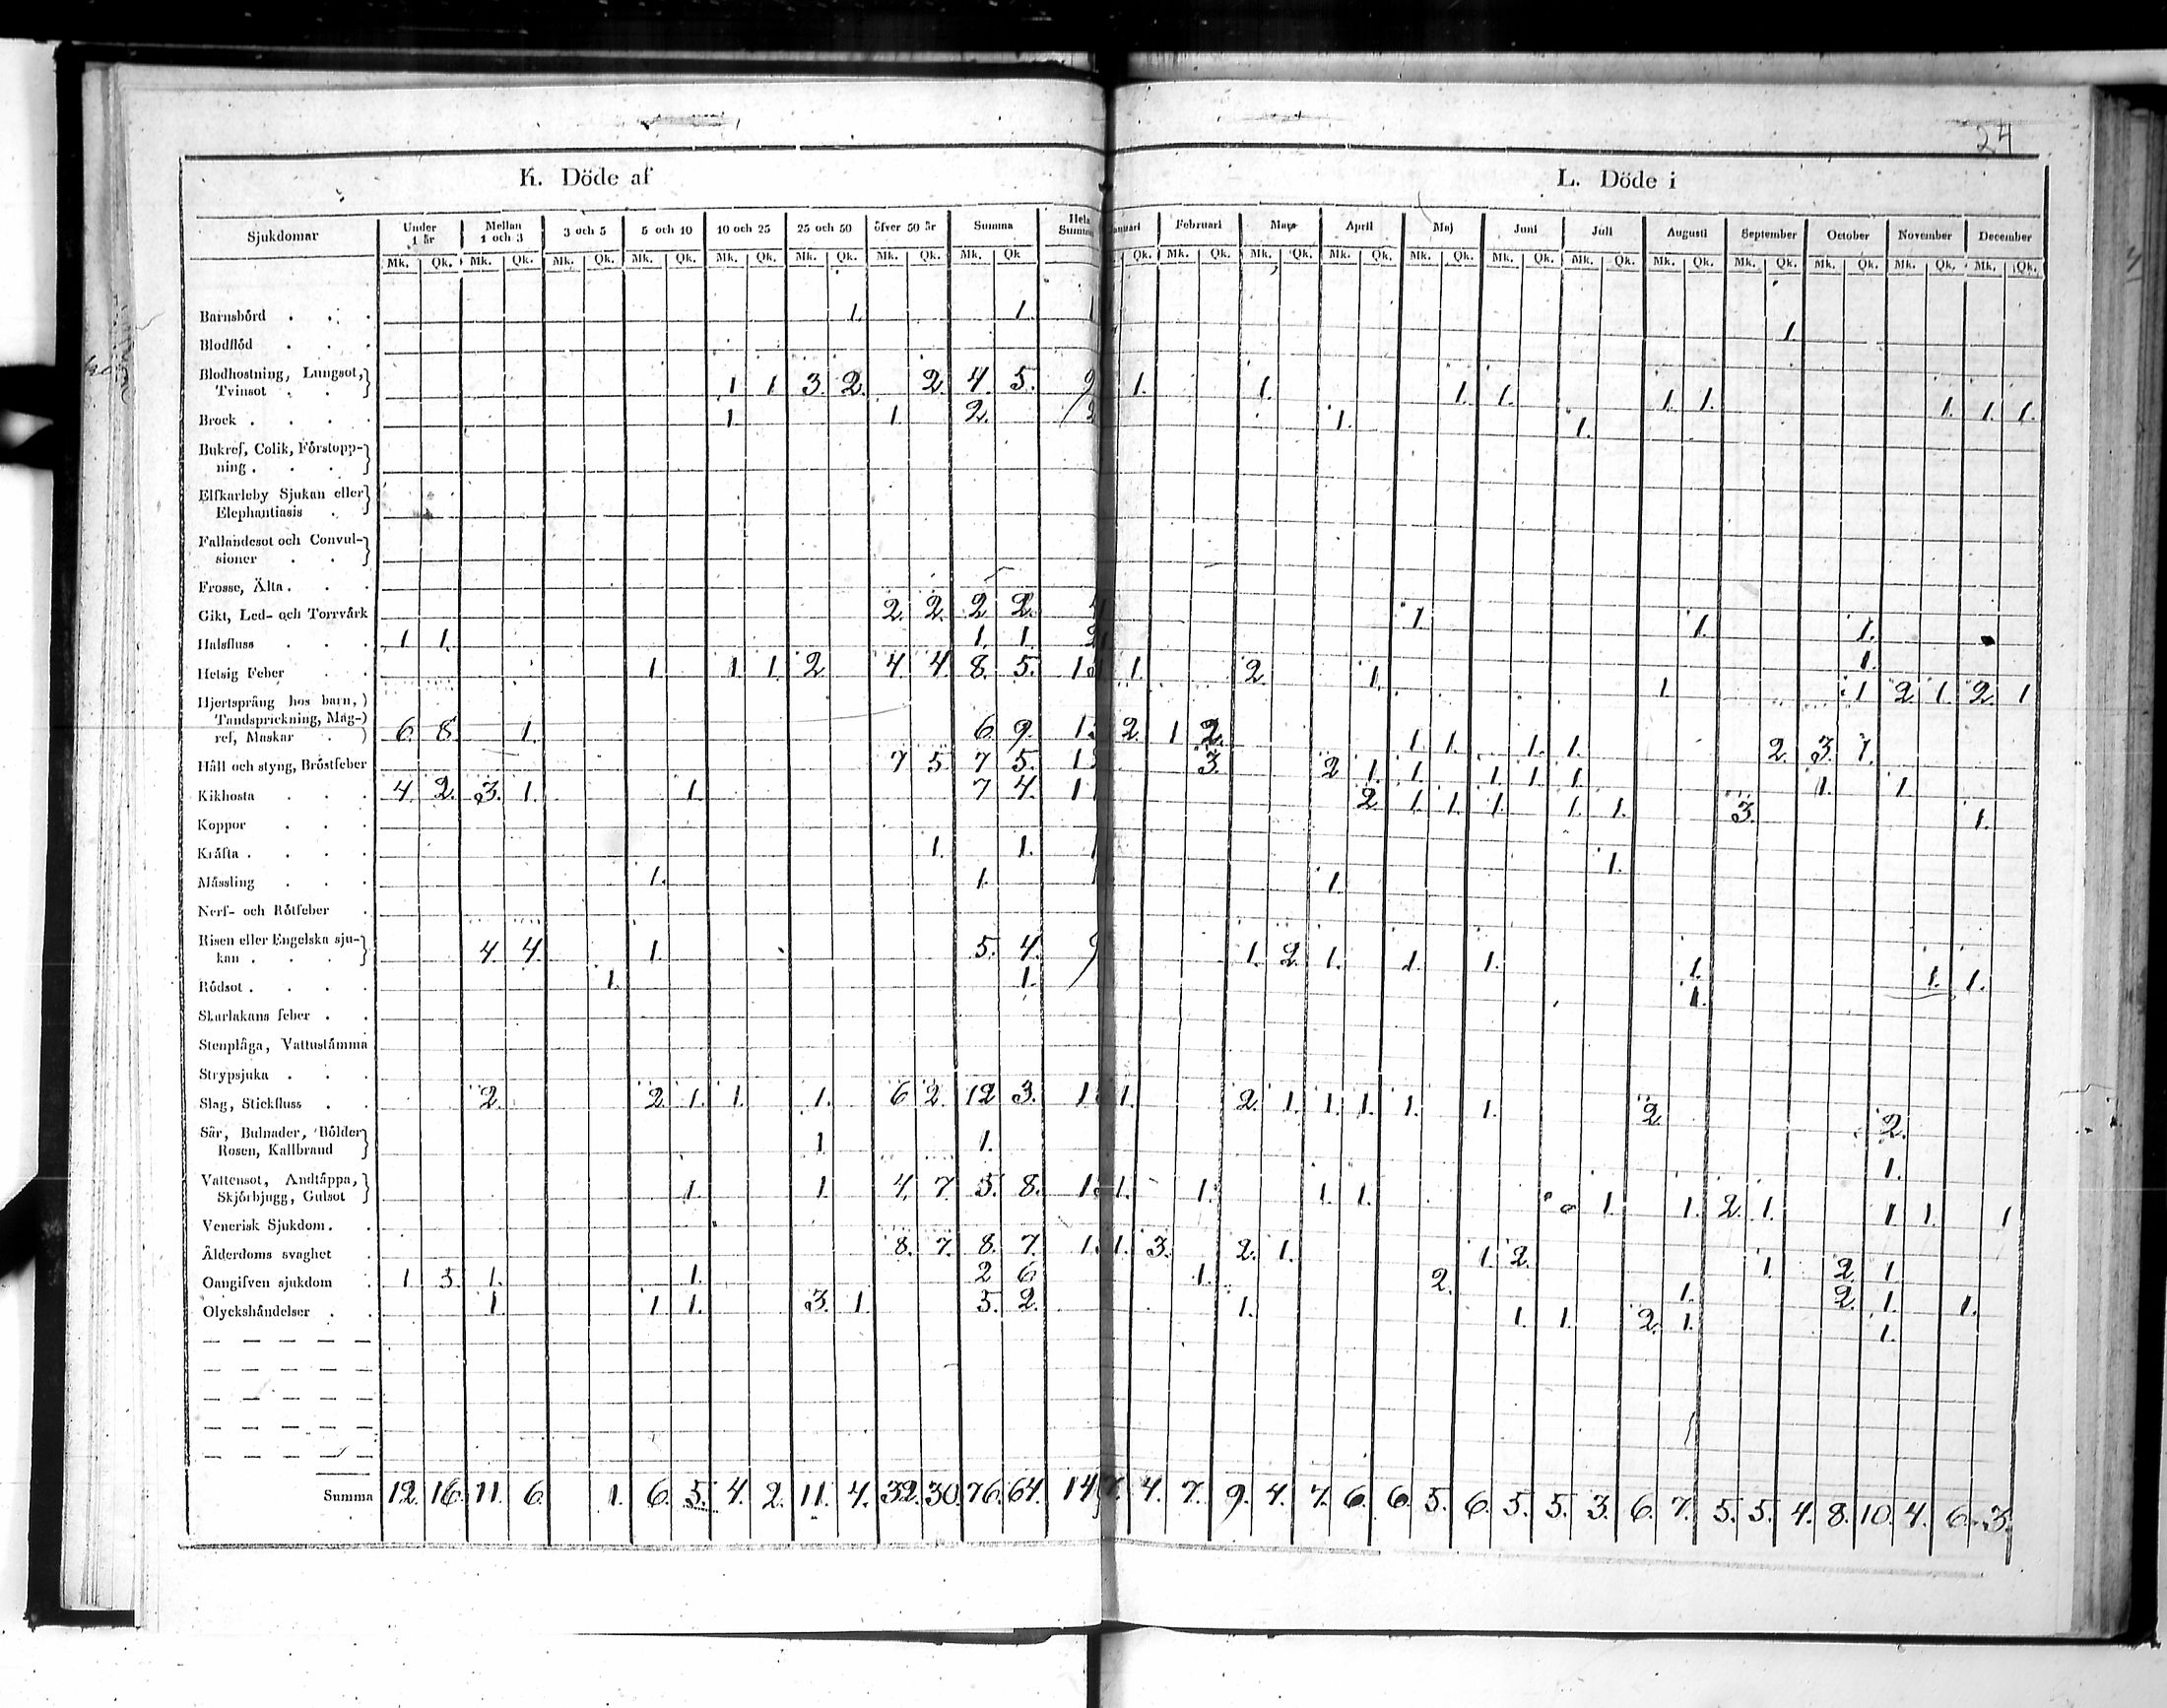 24
K. Döde af L. Döde i
Sjukdomar Under 1 år Mellan 1 och 3 3 och 5 5 och 10 10 och 25 25 och 50 öfver 50 år Summa Hela Februari Mars April Maj Juni Juli Augusti September October November December
Mk. Qk. Mk. Qk. Mk. Qk. Mk. Qk. Mk. Qk. Mk. Qk. Mk. Qk. Mk. Qk Qk. Mk. Qk. Mk. Qk. Mk. Qk. Mk. Qk. Mk. Qk. Mk. Qk. Mk. Qk. Mk. Qk. Mk. Qk. Mk. Qk. Mk. Qk.
Barnsbörd 1. 1. 1.
Blodflöd
Blodhostning, Lungsot,
Tvinsot 1 1 3. 2. 2. 4. 5. 9 1. 1. 1. 1. 1. 1. 1. 1. 1.
Brock 1. 1. 2. 2 1. 1.
Bukref, Colik, Förstopp-
ning
Elfkarleby Sjukan eller
Elephantiasis
Fallandesot och Convul-
sioner
Frosse, Älta
Gikt, Led- och Torrvärk 2. 2. 2. 2. 4 1. 1. 1.
Halsfluss 1 1. 1. 1. 2 1.
Hetsig Feber 1. 1 1. 2. 4. 4. 8. 5. 1. 2. 1. 1. 1 2. 1. 2. 1
Hjertsprång hos barn,
Tandsprickning, Mag-
ref, Maskar 6. 8. 1. 6. 9. 2. 1 2. 1. 1. 1. 1. 2. 3. 1.
Håll och styng, Bröstfeber 7 5. 7 5. 3. 2 1. 1. 1. 1. 1. 1. 1.
Kikhosta 4. 2. 3. 1. 1. 7 4. 2. 1. 1. 1. 1. 1. 3. 1.
Koppor
Kräfta 1. 1. 1.
Mässling 1. 1. 1.
Nerf- och Rötfeber
Risen eller Engelska sju-
kan 4. 4. 1. 5. 4. 9 1. 2. 1. 1. 1. 1. 1. 1.
Rödsot 1. 1. 1.
Skarlakans feber
Stenplåga, Vattustämma
Strypsjuka
Slag, Stickfluss 2. 2. 1. 1. 1. 6 2. 12 3. 1. 2. 1. 1. 1. 1. 1. 2. 2.
Sår, Bulnader, Bölder
Rosen, Kallbrand 1 1. 1.
Vattensot, Andtäppa,
Skjörbjugg, Gulsot 1. 1. 4. 7. 5. 8. 1. 1. 1. 1. 1. 1. 2. 1. 1 1. 1
Venerisk Sjukdom
Ålderdoms svaghet 8. 7. 8. 7. 1. 3. 2. 1. 1. 2. 1. 2. 1.
Oangifven sjukdom 1 3. 1. 1. 2 6 1. 2. 1. 2. 1. 1.
Olyckshändelser 1. 1 1. 3. 1. 5. 2. 1. 1. 1. 2. 1. 1.
Summa 12. 16. 11. 6. 1. 6. 5. 4. 2. 11. 4. 32. 30. 76. 64. 14 7. 4. 7. 9. 4. 7. 6. 6. 5. 6. 5. 5. 3. 6. 7. 5. 5. 4. 8. 10. 4. 6. 3.